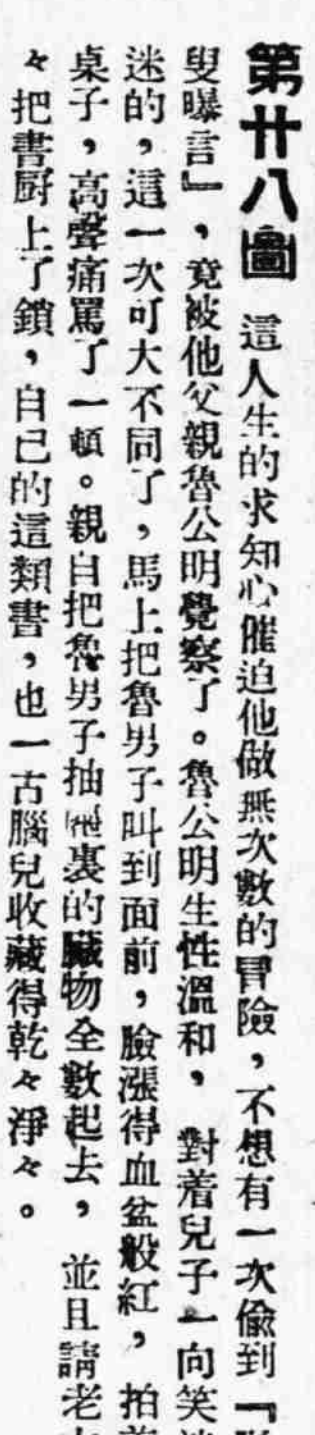 第廿八圖 這人生的求知心催迫他做無次數的冒險，不想有一次偸到『
叟曝言』，竟被他父親魯公明覺察了。魯公明生性溫和，對着兒子一向笑
迷的，這一次可大不同了，馬上把魯男子叫到面前，臉漲得血盆般紅，拍
桌子，高聲痛罵了一頓。親自把魯男子抽屜裏的臟物全數起去，並且請老
々把書厨上了鎖，自己的這類書，也一古腦兒收藏得乾々淨々。